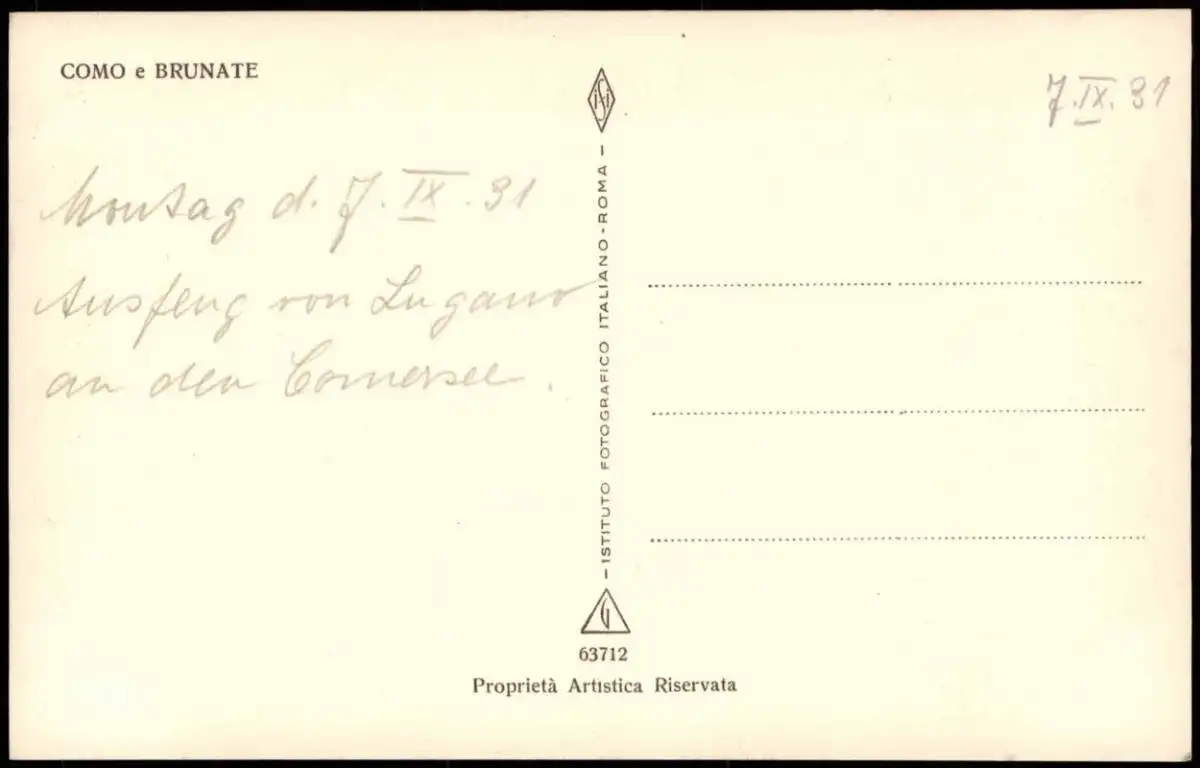 COMO e BRUNATE
7.IX.31
Montag d. 7.IX.31
Ausfeug von Lugano
an den Comersee.
ISTITUTO FOTOGRAFICO ITALIANO-ROMA
63712
Proprietà Artistica Riservata